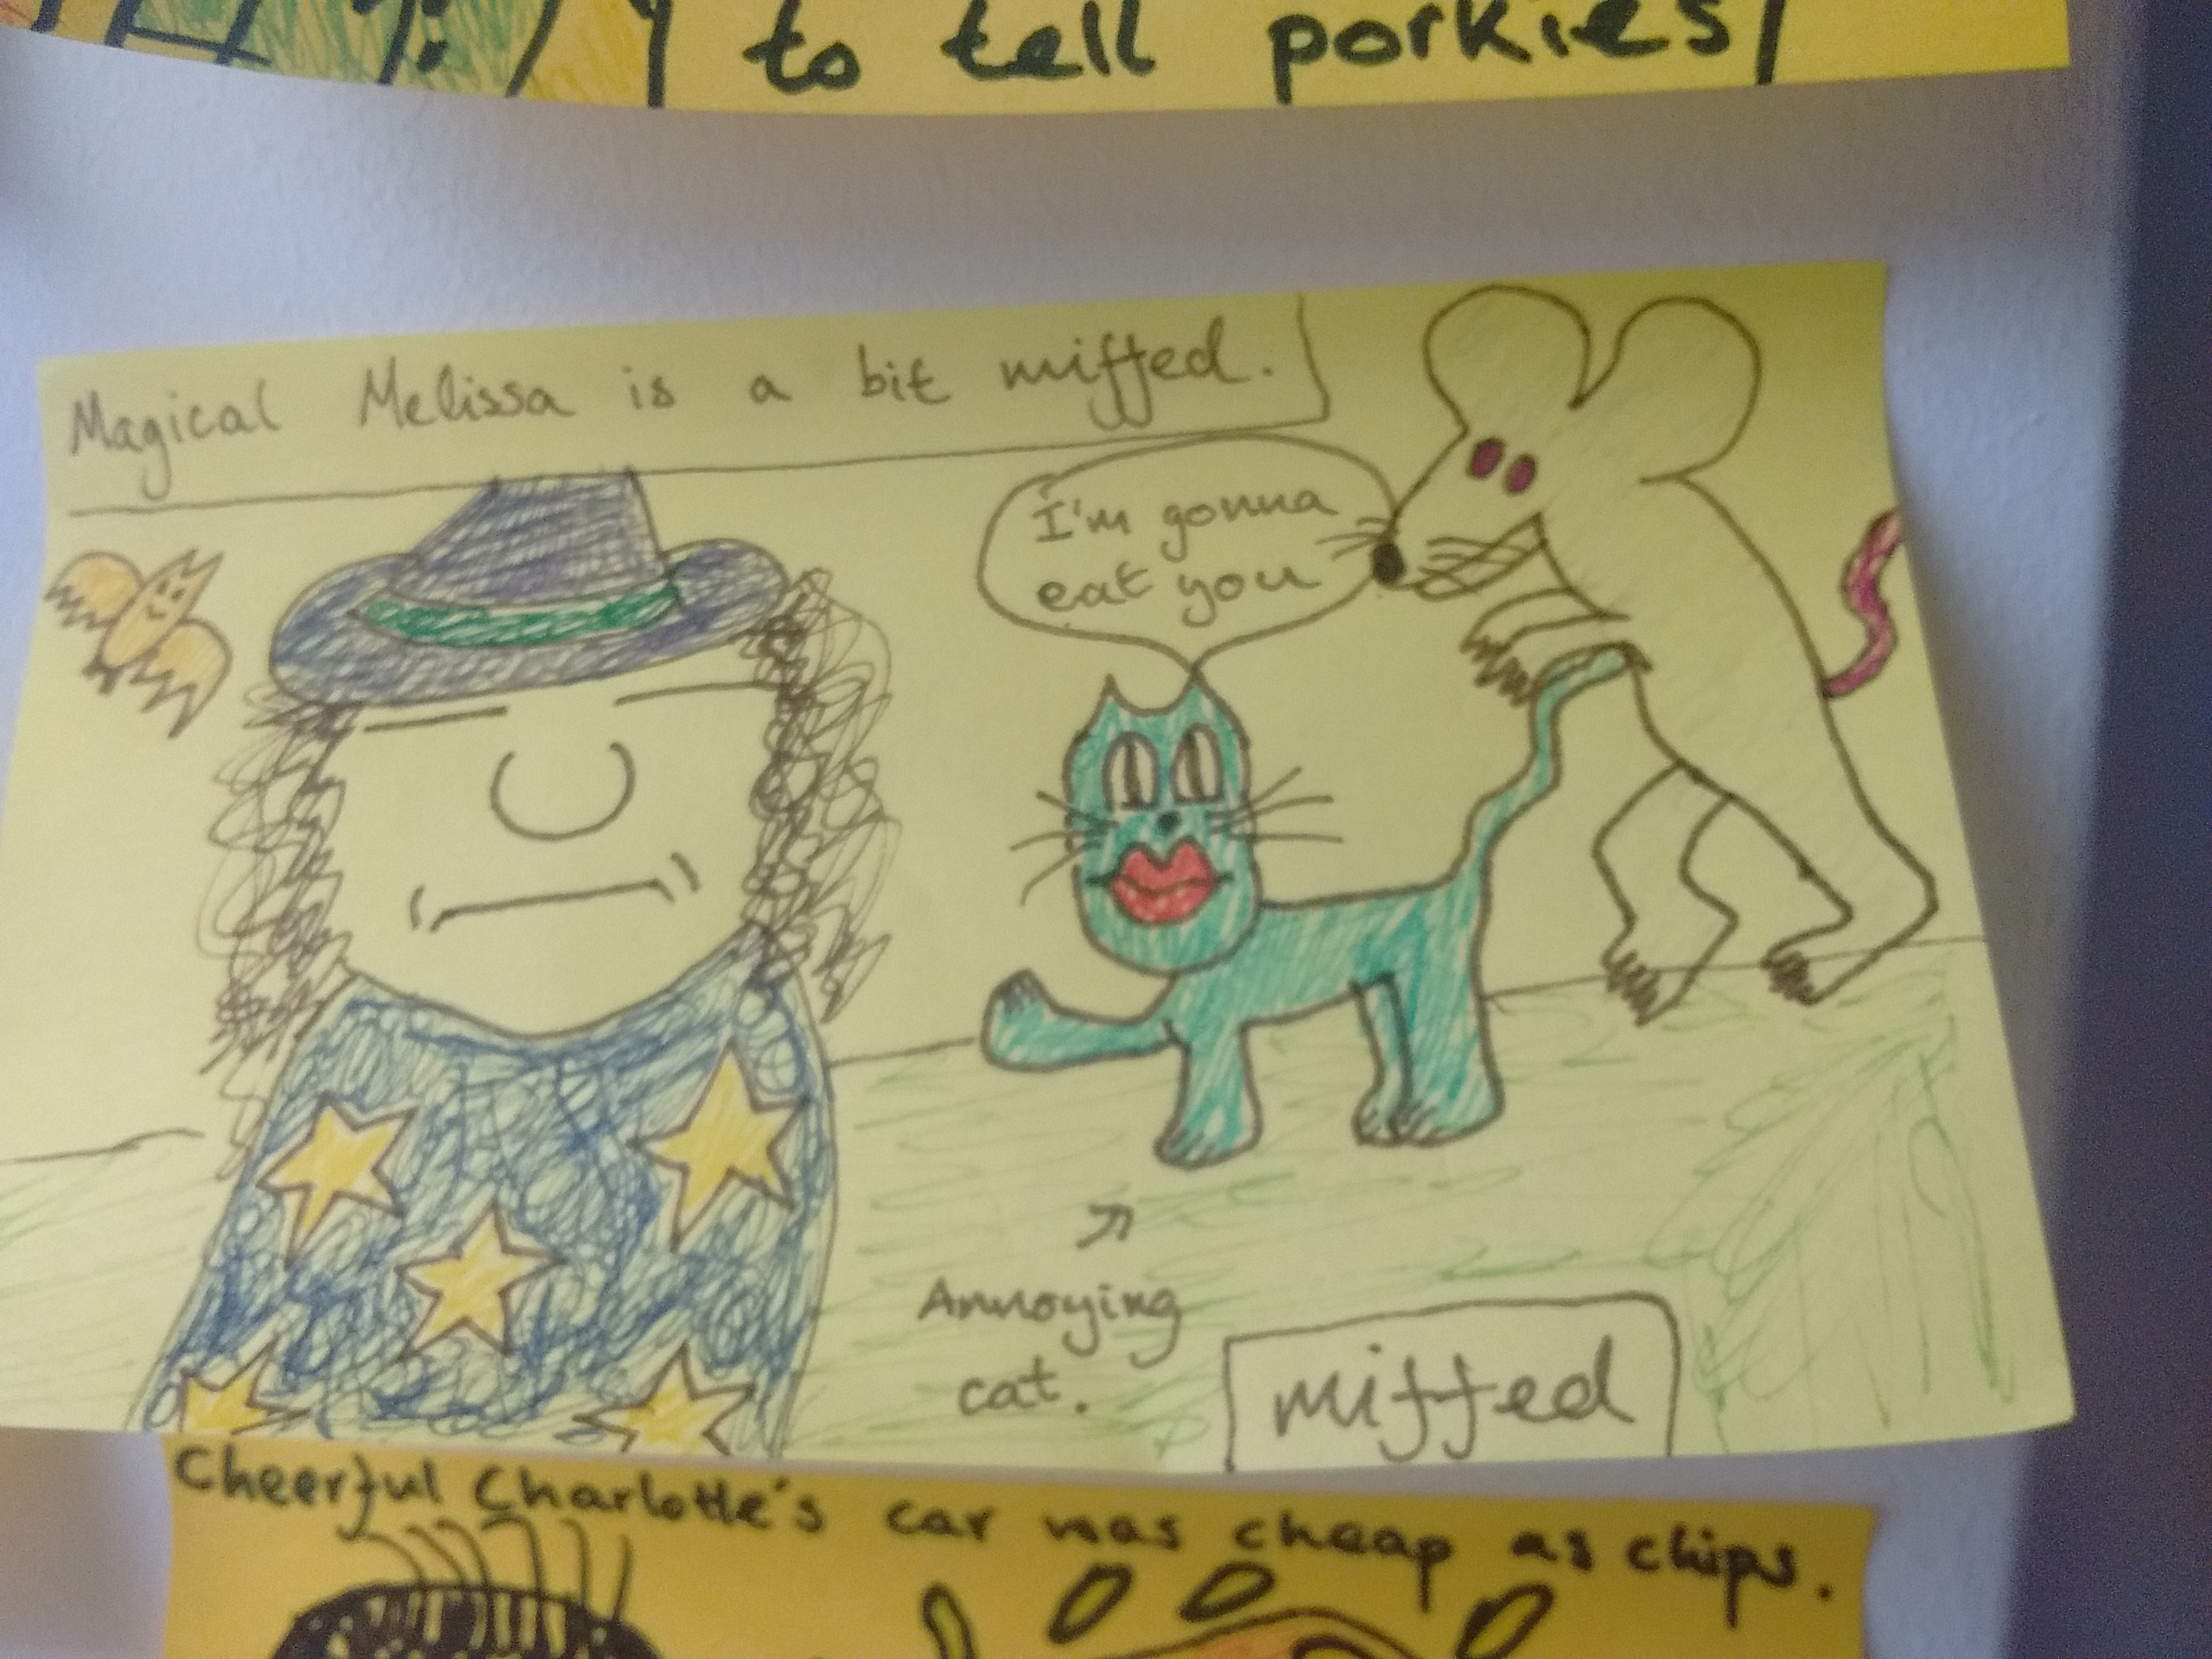 to tell porkies
Magical Melissa is a bit miffed.
I'm gonna
eat you
Annoying
cat.
miffed
Cheerful Charlotte's car was cheap as chips.